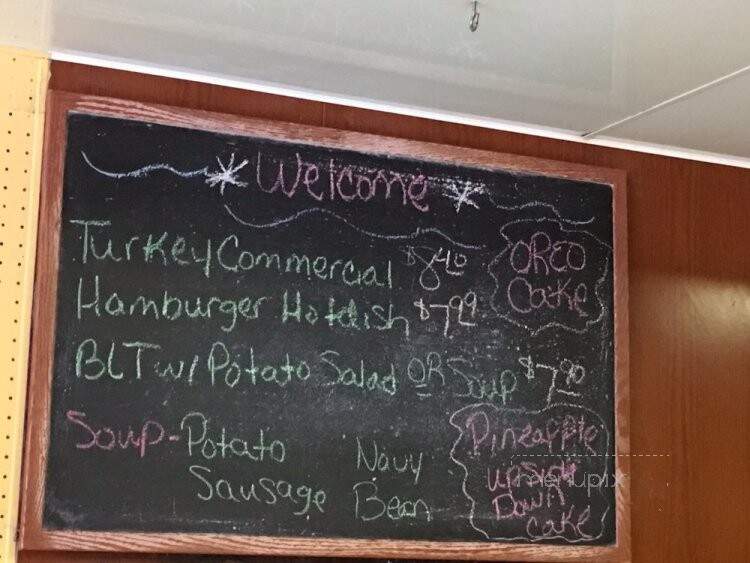 Welcome
Turkey Commercial $8.40
Hamburger Hotdish $7.99
BLT w/ Potato Salad OR Soup $7.90
OREO
Cake
Soup - Potato
Sausage
Navy
Bean
Pineapple
upside
Down
cake
menupix